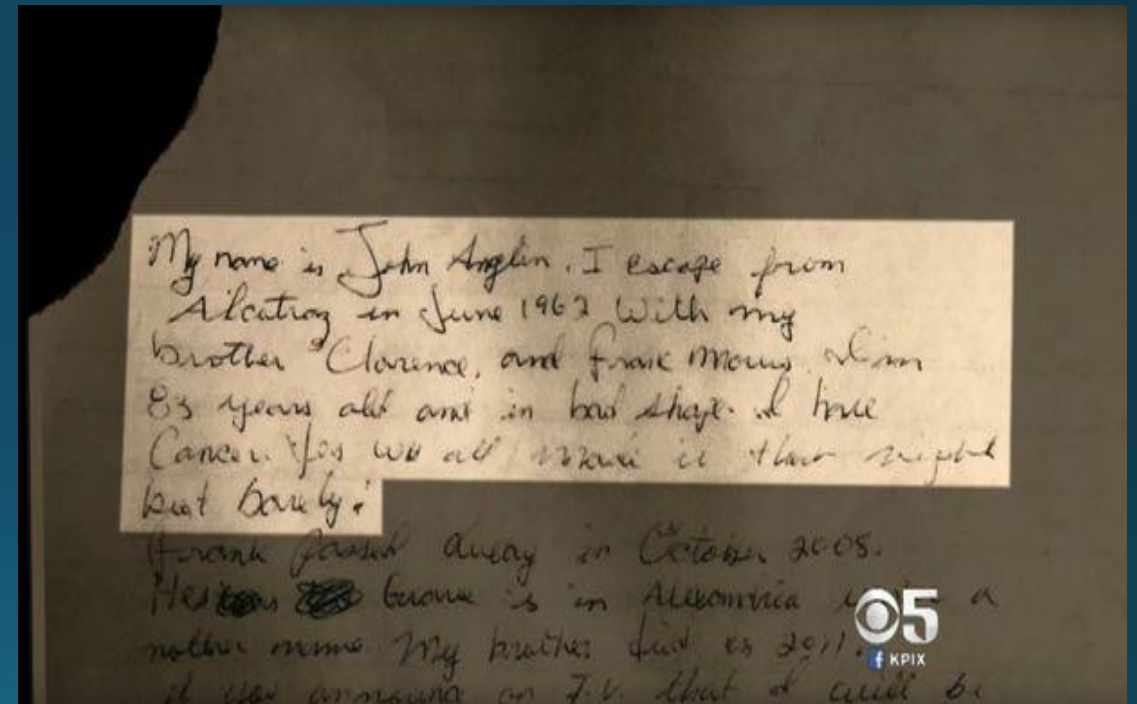 My name is John Anglin. I escape from
Alcatraz in June 1962 With my
brother Clarence, and Frank Morris. I'm
83 years old and in bad shape. I have
Cancer. Yes we all made it that night
but barely!
Frank passed away in October 2008.
Hes Grave is in Alexandria a
nother name. My brother died in 2011.
if you announce on T.V. that I will be
5
f KPIX